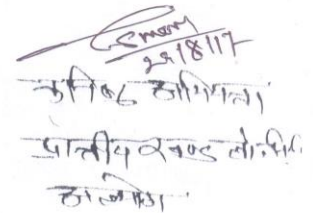 28/8/17
कनिष्ठ अभियन्ता
प्रान्तीय खण्ड लो.नि.वि.
अल्मोड़ा